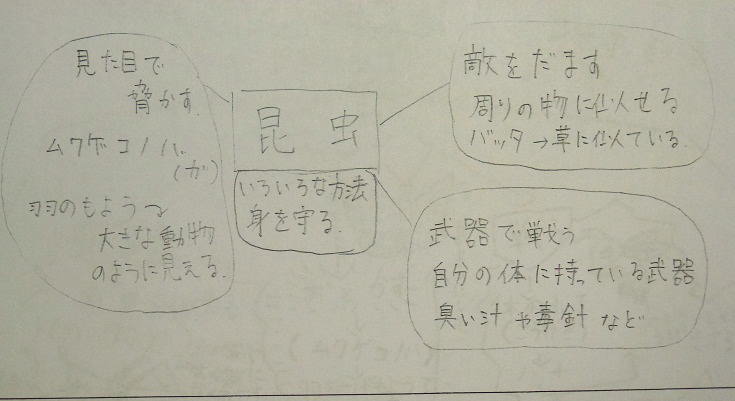 昆虫
いろいろな方法
身を守る.
見た目で
脅かす.
ムクゲコノハ
(ガ)
羽のもよう→
大きな動物
のように見える.
敵をだます
周りの物に似せる
バッタ→草に似ている.
武器で戦う
自分の体に持っている武器
臭い汁や毒針など